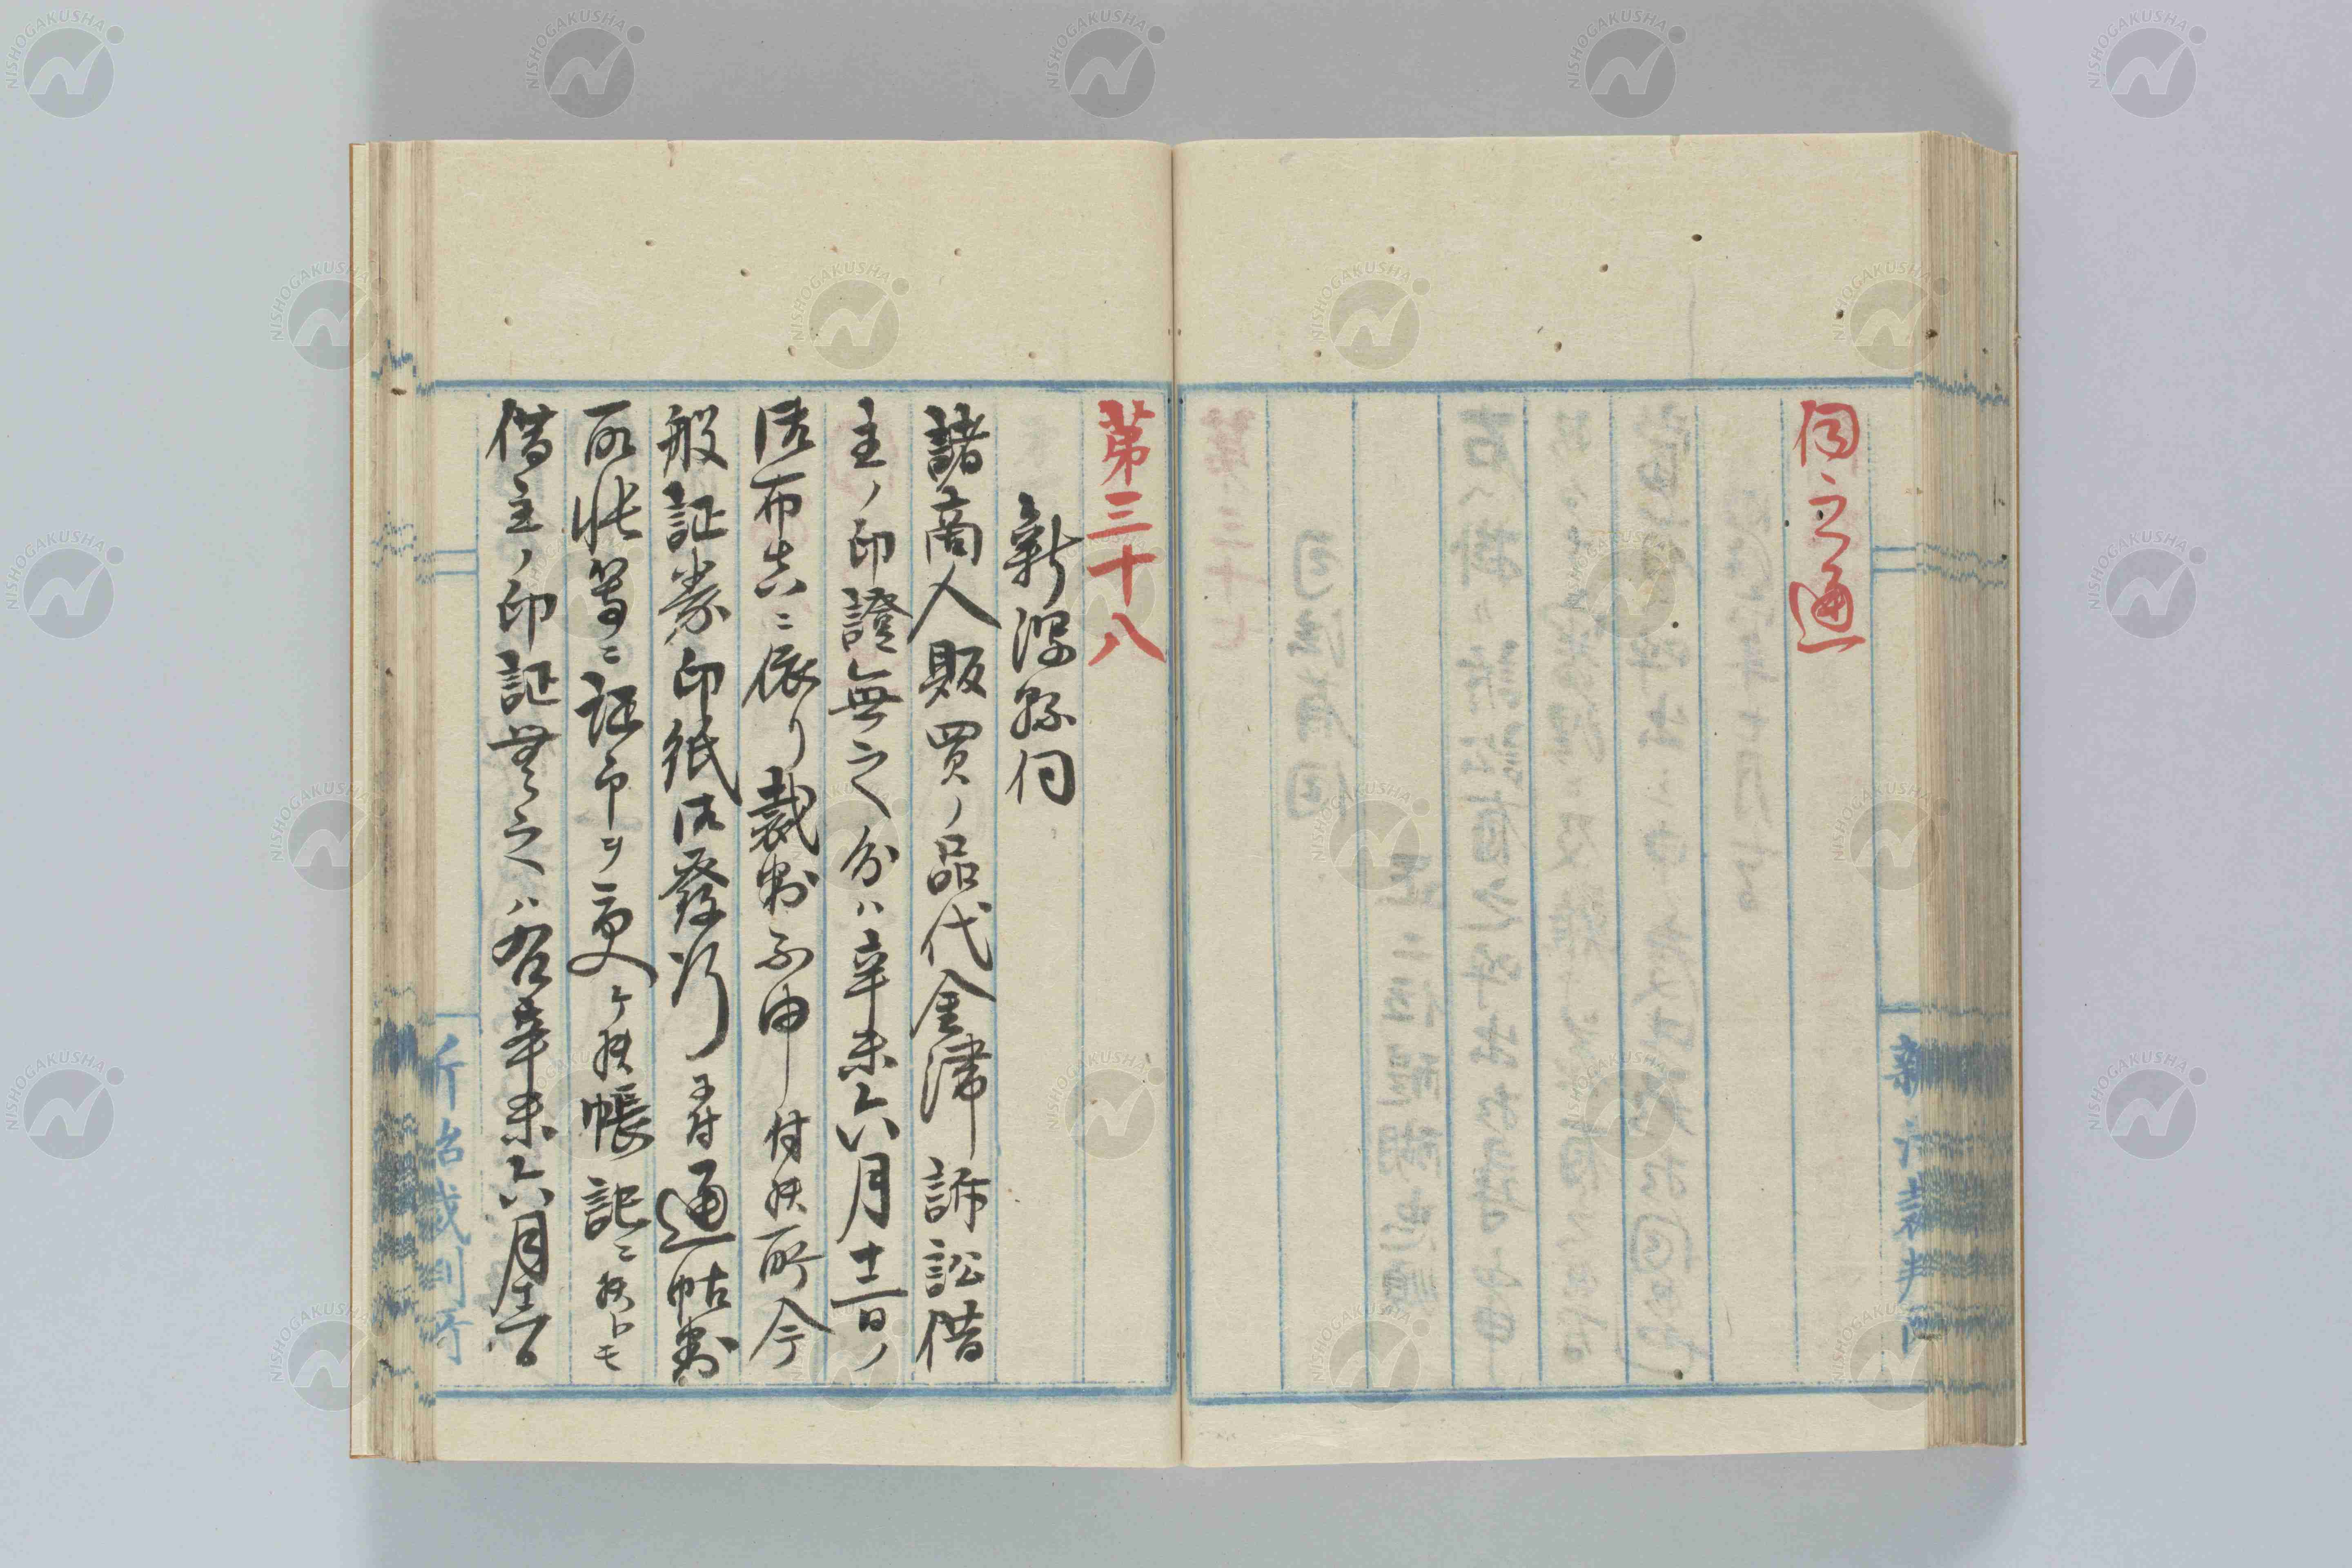 伺之通
第三十八
新潟縣伺
諸商人販買ノ品代金滞訴訟借
主ノ印證無之分ハ辛未六月十二日ノ
御布告ニ依リ裁判不申付候所今
般証券印紙御發行ニ付通帖判
取帳等ニ証印ヲ受ケ候帳記ニ候トモ
借主ノ印証無之ハ右辛未六月十二日
新治裁判所
NISHOGAKUSHA